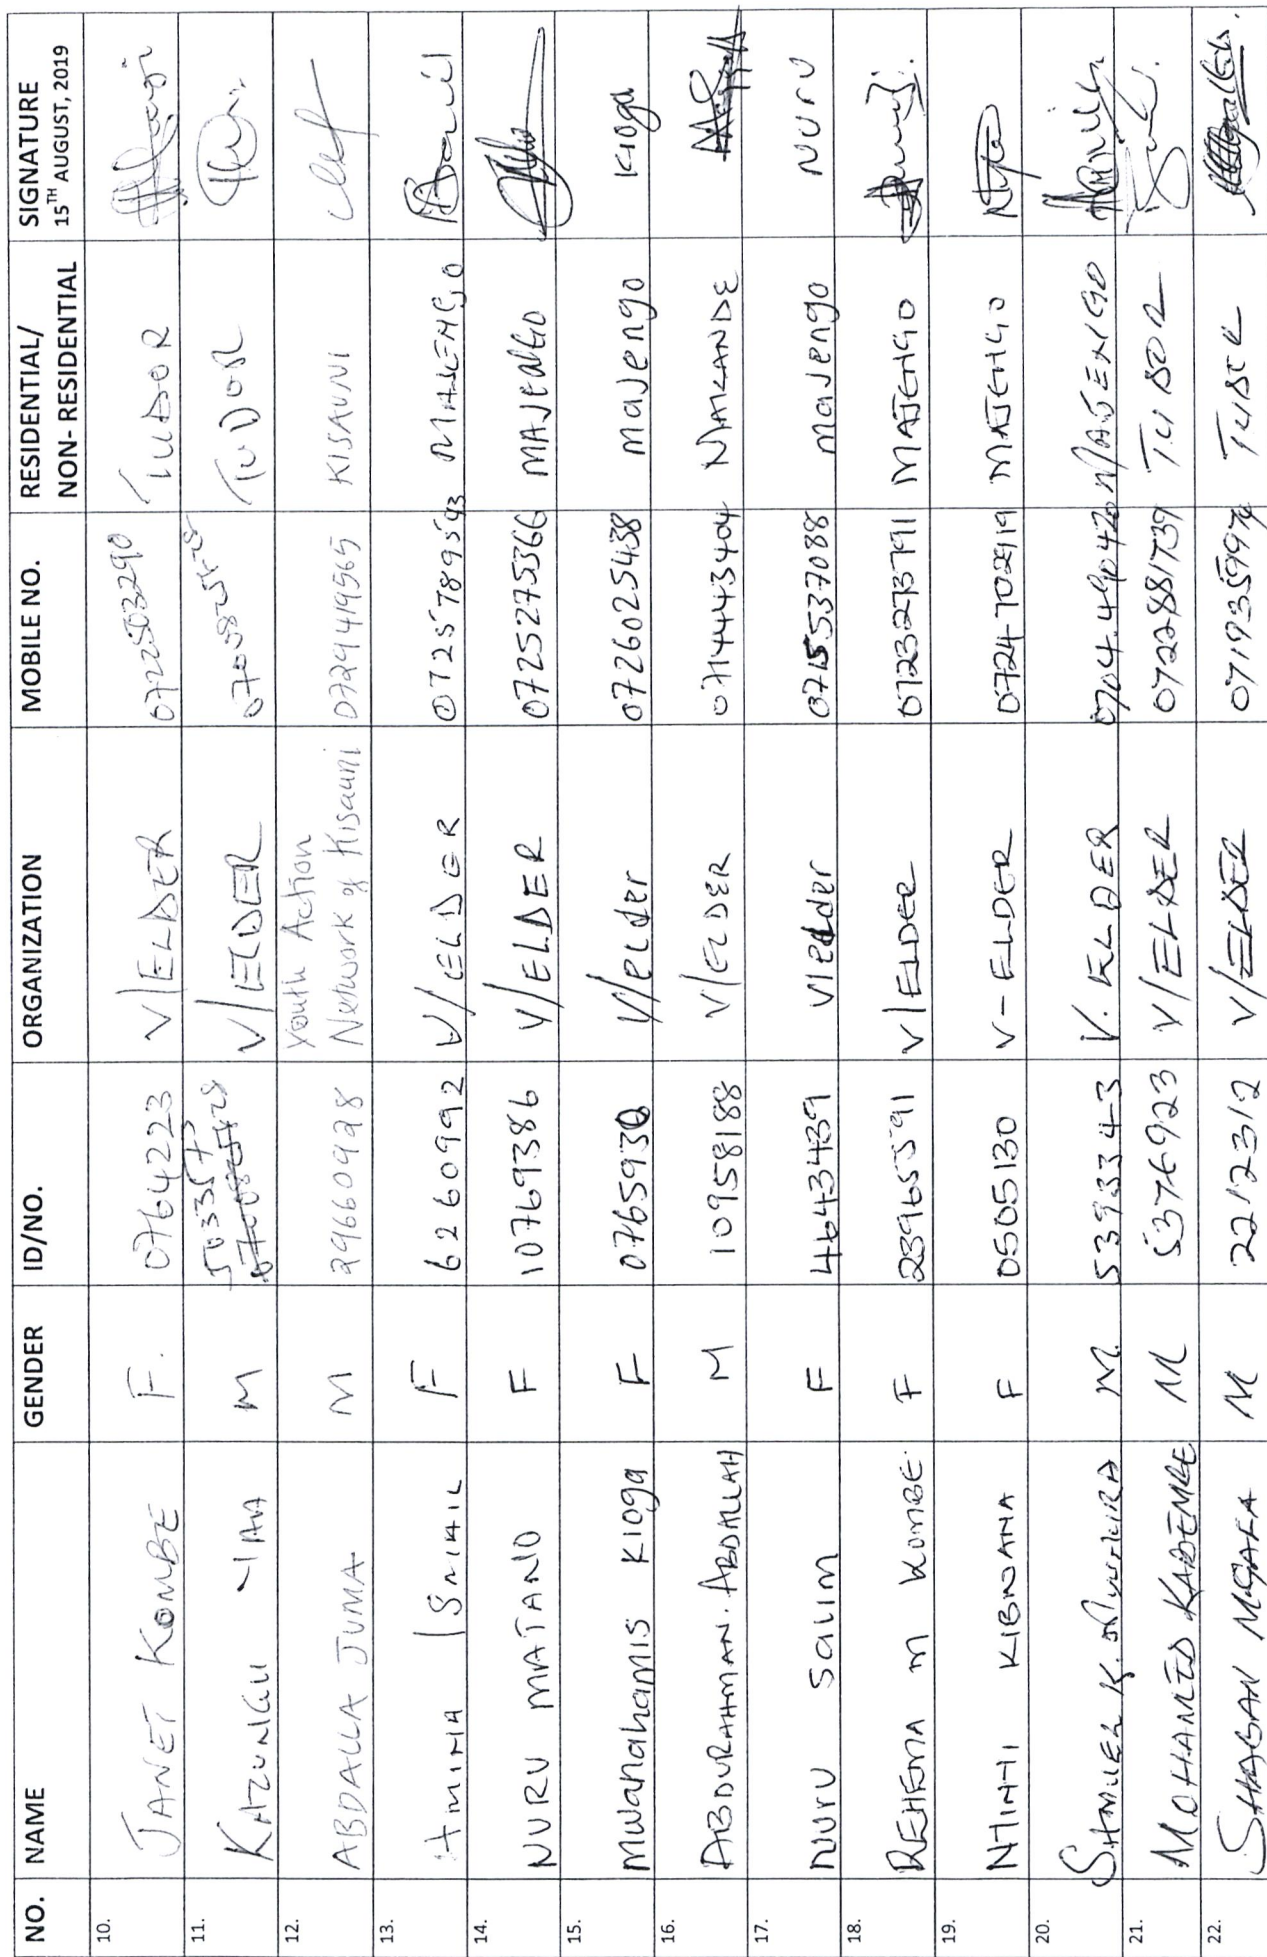 NO. NAME GENDER ID/NO. ORGANIZATION MOBILE NO. RESIDENTIAL/ NON- RESIDENTIAL SIGNATURE 15TH AUGUST, 2019
10. JANET KOMBE F. 0764223 V/ELDER 0722503290 TUDOR
11. KAZUNGU M V/ELDER TUDOR
12. ABDALLA JUMA M 29660928 Youth Action Network of Kisauni 0729419565 KISAUNI
13. Amina Ismail F 6260992 V/ELDER 0725789543 MAJENGO
14. NURU MATANO F 10769386 V/ELDER 0725275366 MAJENGO
15. Mwanahamis Kioga F 0765930 V/elder 0726025438 Majengo Kioga
16. ABDURAHMAN. ABDALLAH M 10958188 V/ELDER 0714443404 MAKANDE
17. NUrU SaLIM F 4643439 V/elder 0715537088 Majengo NUrU
18. REHEMA M KOMBE F 23965591 V/ELDER 0723273791 MAJENGO
19. KIBWANA F 0505130 V-ELDER 0724702919 MAJENGO
20. SAMUEL K. M. 5393343 V. ELDER 0704490420 MAJENGO
21. MOHAMED M 5376923 V/ELDER 0722881739 TUDOR
22. SHABAN M 2212312 V/ELDER 0719359974 TUDOR